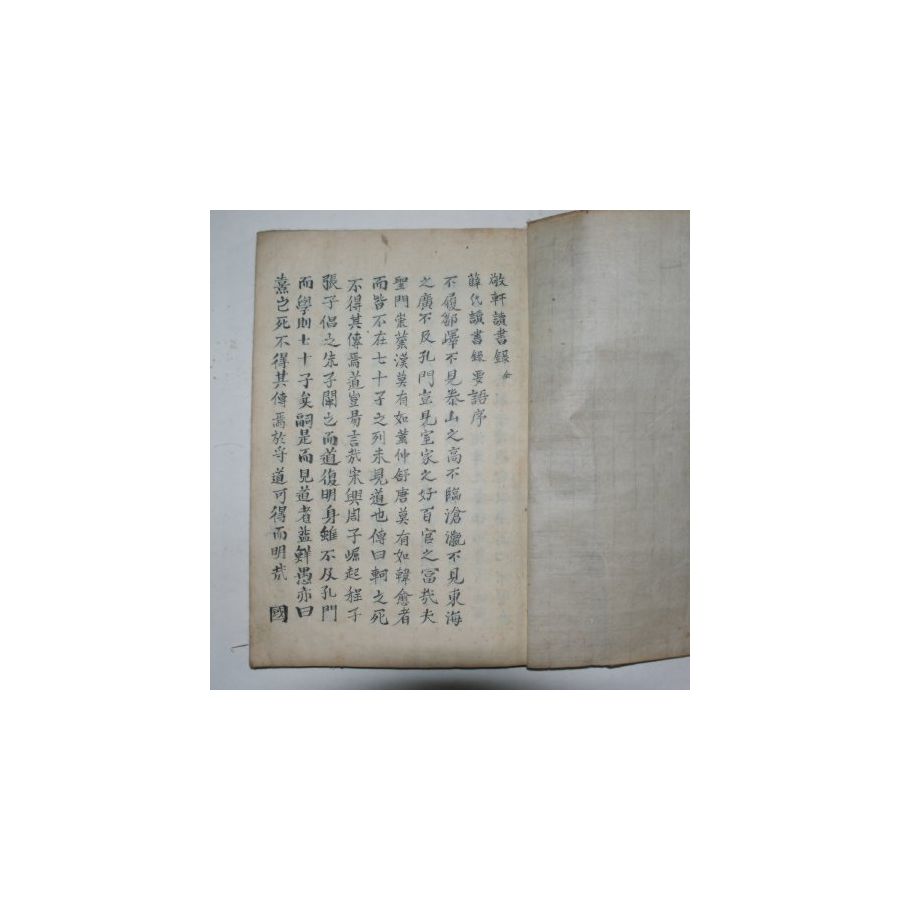 敬軒讀書錄 全
薛氏讀書錄要語序
不履鄒嶧不見泰山之高不臨滄瀛不見東海
之廣不及孔門豈見室家之好百官之富哉夫
聖門崇業漢莫有如董仲舒唐莫有如韓愈者
而皆不在七十子之列未見道也傳曰軻之死
不得其傳焉道豈易言哉宋興周子崛起程子
張子倡之朱子闡之而道復明身雖不及孔門
而學則七十子矣嗣是而見道者益鮮愚亦曰
熹之死不得其傳焉於乎道可得而明哉 國